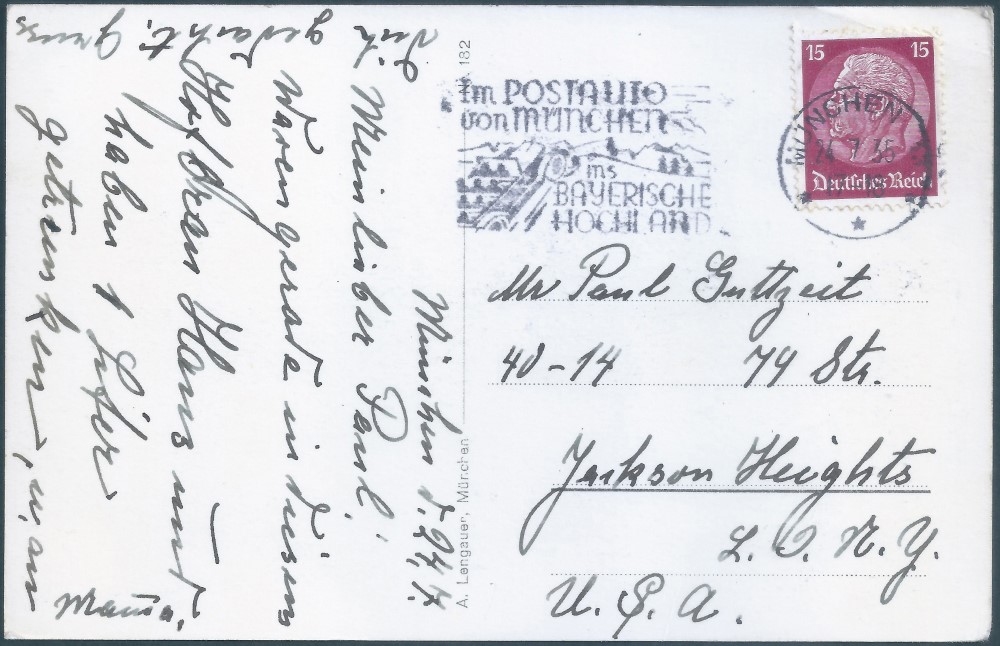 München d. 24/7.
Mein lieber Paul,
Waren gerade in diesem
Hofbräu Haus und
haben 1 Liter
getrunken, u. an
dich
gedacht,
Gruss
Mama.
A. Lengauer, München
182
Im POSTAUTO
von MÜNCHEN
ins
BAYERISCHE
HOCHLAND
15 15
Deutsches Reich
MÜNCHEN
24.7.35
Mr Paul Guttzeit
40-14 79 Str.
Jackson Heights
L. I. N. Y.
U. S. A.